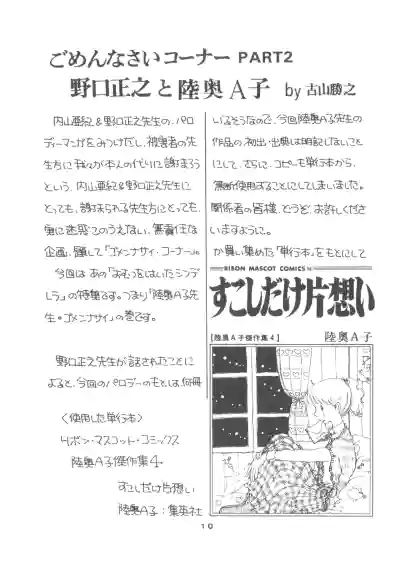 ごめんなさいコーナー PART2
野口正之と陸奥A子 by 古山勝之
内山亜紀&野口正之先生の、パロ
ディーマンガをみつけだし、被害者の先
生方に我々が本人の代りに謝まろう
という、内山亜紀&野口正之先生に
とっても、謝まられる先生方にとっても、
実に迷惑このうえない、無責任な
企画、題して「ゴメンナサイ・コーナー」。
今回は あの「おむつをはいたシンデ
レラ」の特集です。つまり「陸奥A子先
生。ゴメンナサイ」の巻です。
野口正之先生が話されたことに
よると、今回のパロデーのもとは、何冊
〈使用した単行本〉
リボン・マスコット・コミックス
陸奥A子傑作集4.
すこしだけ片想い
陸奥A子:集英社
いるそうなので、今回陸奥A子先生の
作品の、初出・出典は明記しないこと
にして、さらに、コピーも単行本から、
無断で使用することにしてしまいました。
関係者の皆様、どうぞ、お許しくださ
いますように。
か買い集めた「単行本」をもとにして
RIBON MASCOT COMICS
すこしだけ片想い
[陸奥A子傑作集4] 陸奥A子
10